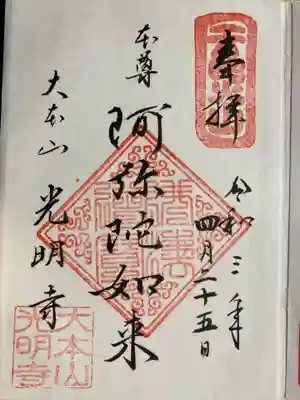 奉拝
令和三年
四月二十五日
本尊
阿弥陀如来
大本山
光明寺
大本山
光明寺